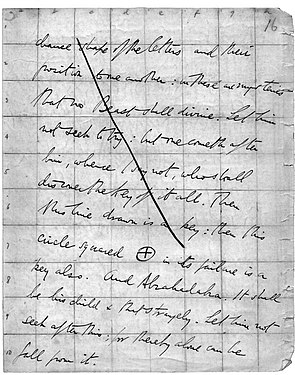 16
chance shape of the letters and their
position to one another: in these are mysteries
that no Beast shall divine. Let him
not seek to try: but one cometh after
him, whence I say not, who shall
discover the Key of it all. Then
this line drawn is a key: then this
circle squared in its failure is a
key also. And Abrahadabra. It shall
be his child & that strangely. Let him not
seek after this; for thereby alone can he
fall from it.